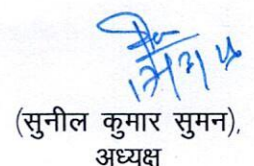 (सुनील कुमार सुमन),
अध्यक्ष